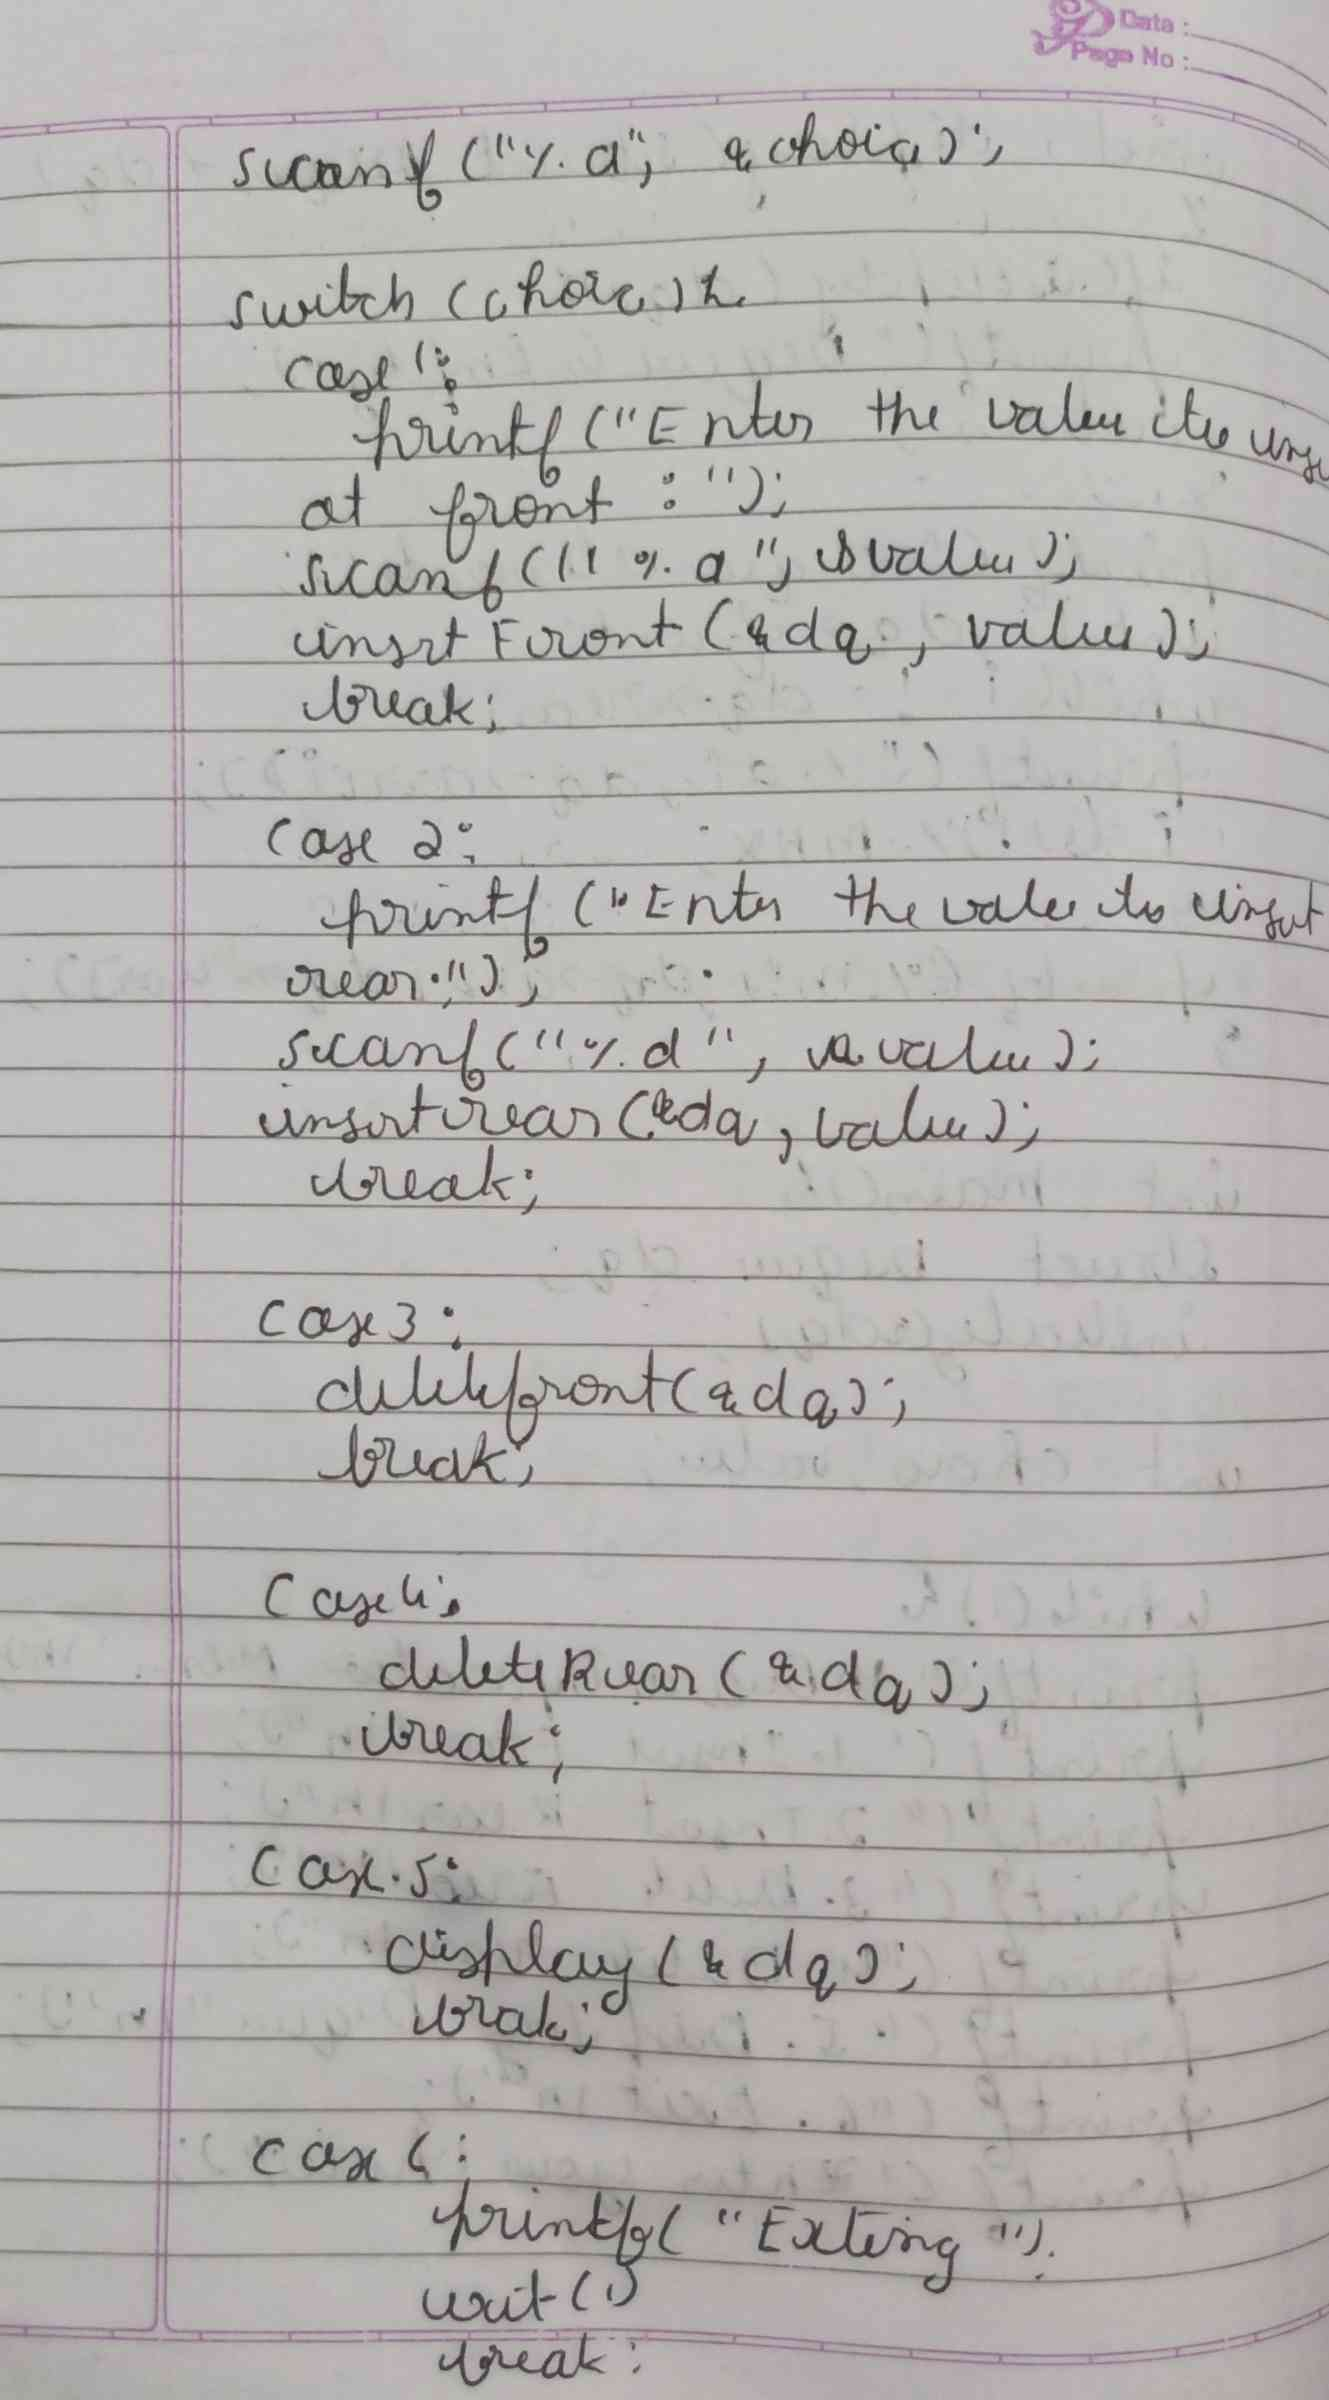 Data :
Page No :
scanf ("%d", &choice);
switch (choice) {
case 1:
printf ("Enter the value to
at front : ");
scanf ("%d", &value);
insertFront (&dq, value);
break;
case 2:
printf ("Enter the value to insert
rear:");
scanf ("%d", &value);
insertrear (&dq, value);
break;
case 3:
deletefront (&dq);
break;
case 4:
deleteRear (&dq);
break;
case 5:
display (&dq);
break;
case 6:
printf ("Exiting ");
break;